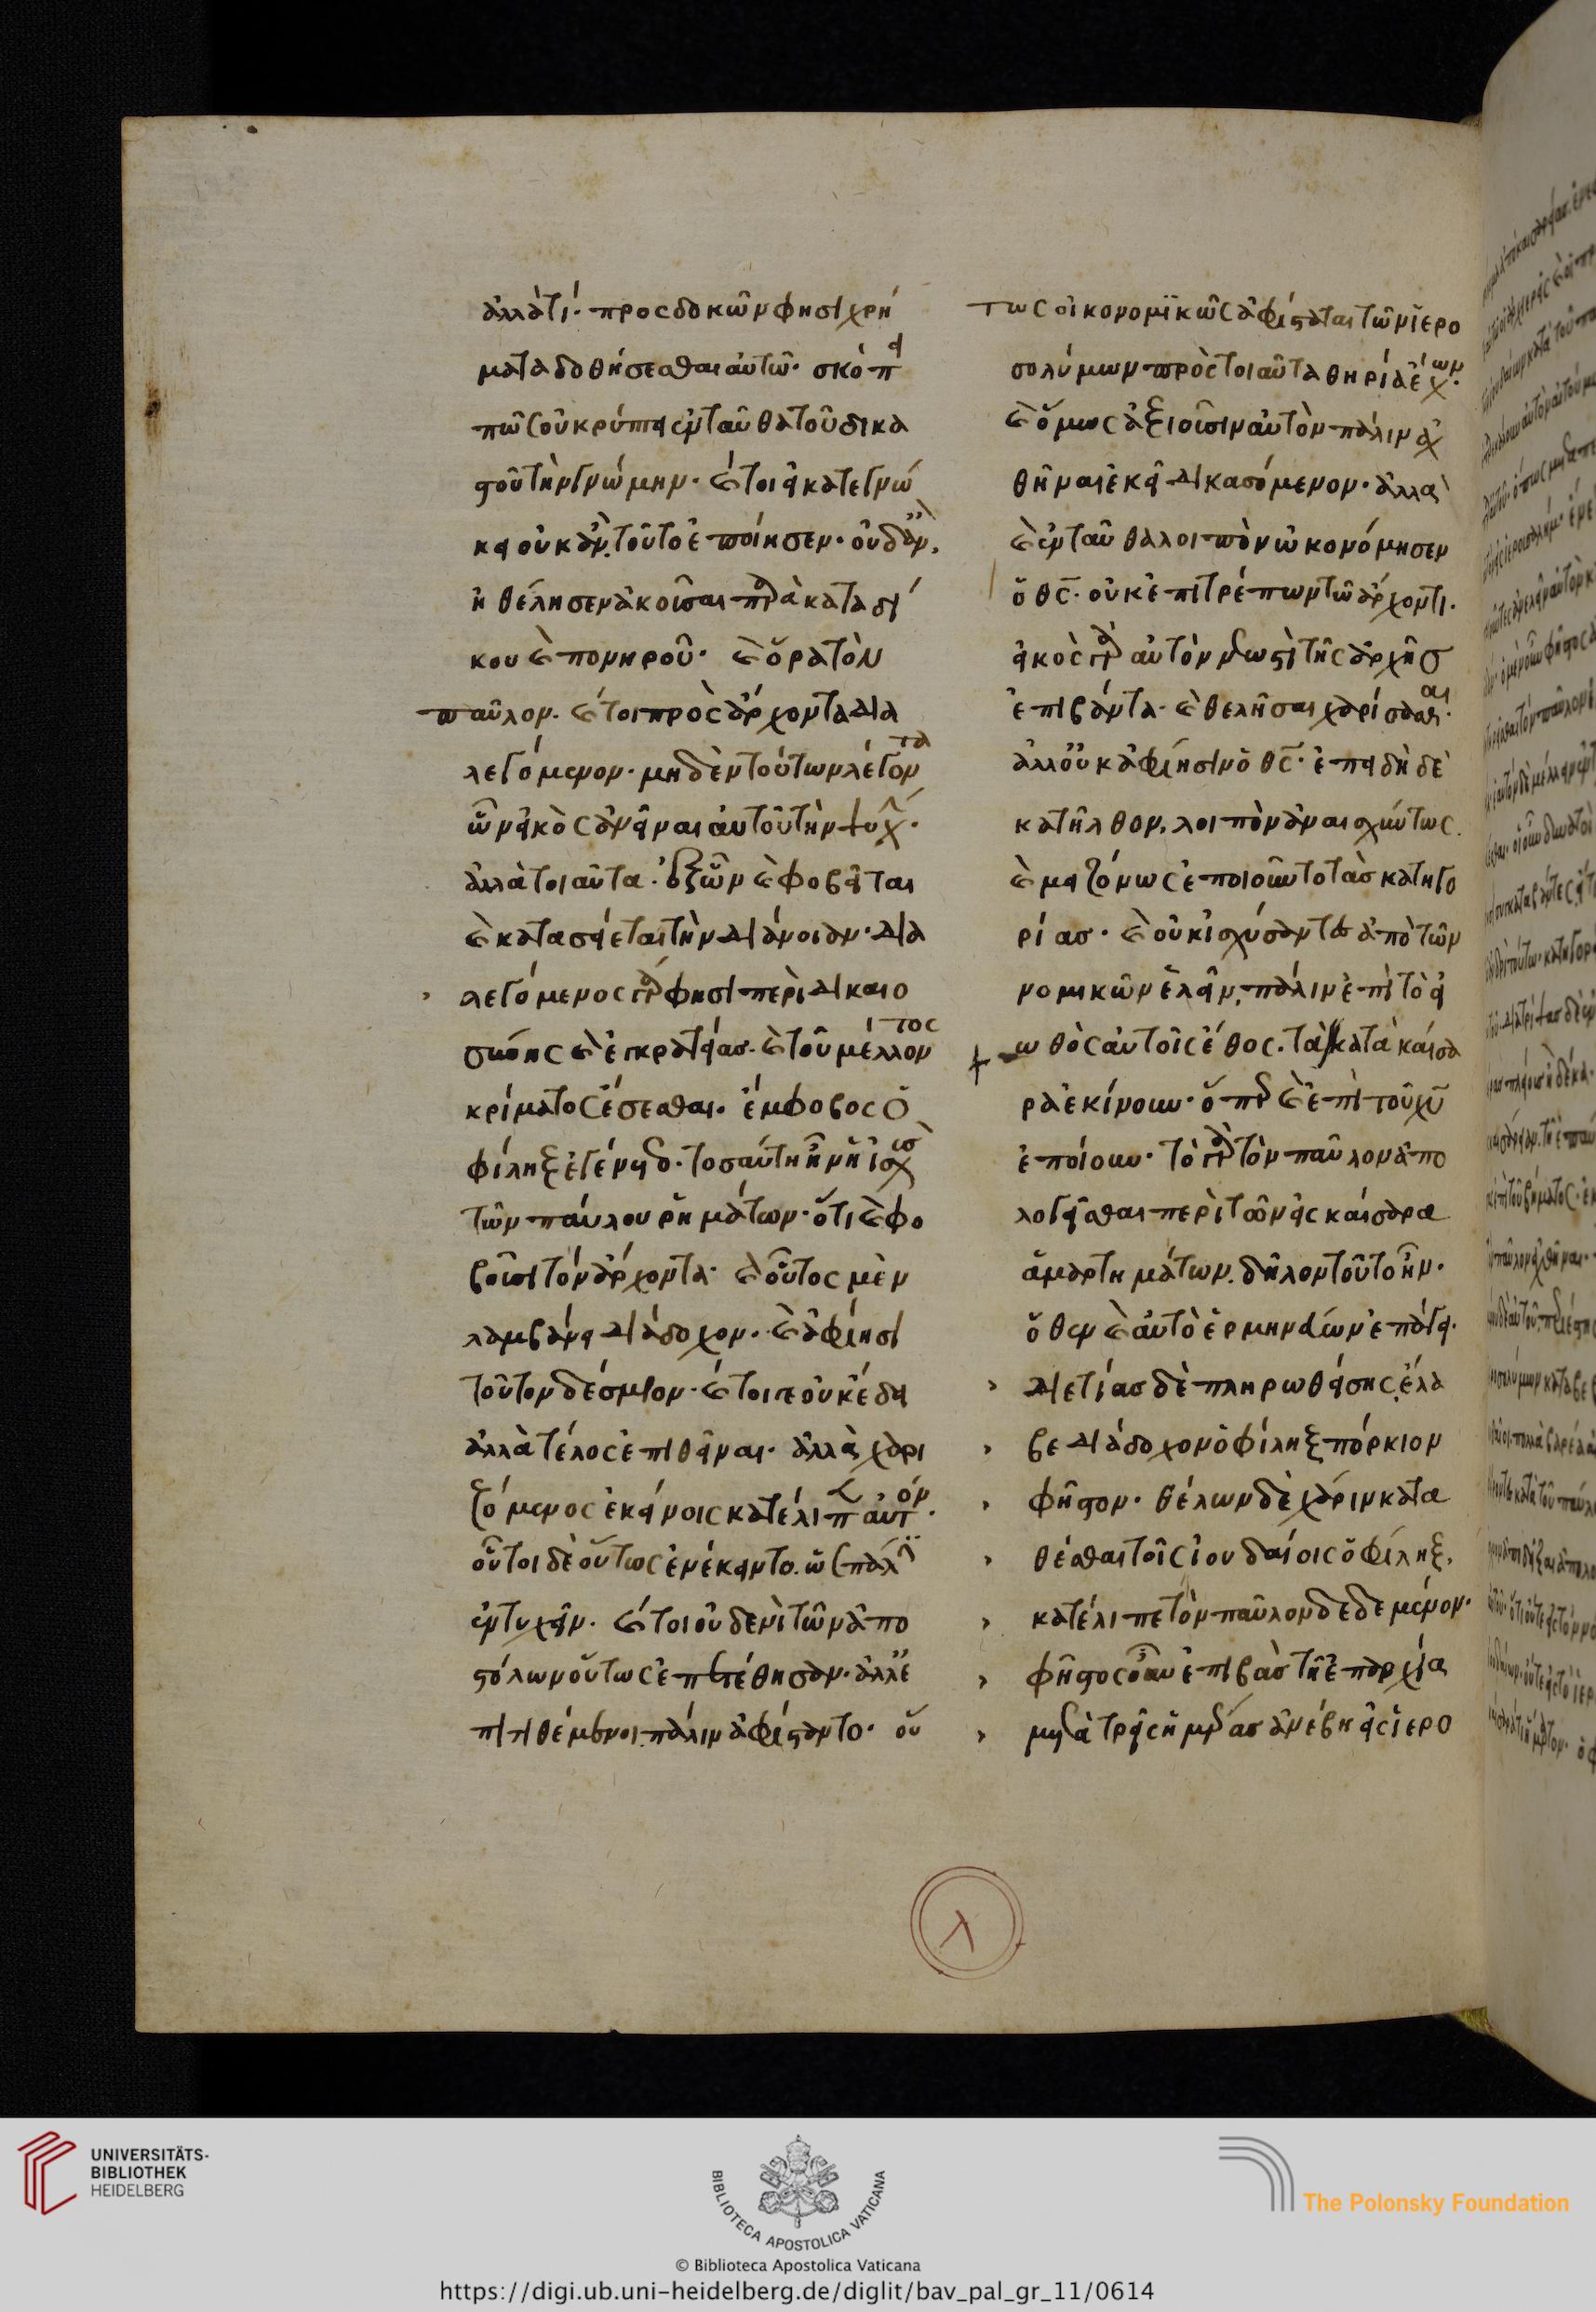 ἀλλὰ τί· προσδοκῶν φησὶ χρή
ματα δοθήσεσθαι αὐτῶ· σκόπει
πῶς οὐ κρύπτει ἐνταῦθα τοῦ δικα
στοῦ τὴν γνώμην· καίτοι εἰ κατεγνώ
κει οὐκ ἂν τοῦτο ἐποίησεν· οὐδ' ἂν,
ἠθέλησεν ἀκοῦσαι παρὰ καταδί
κου καὶ πονηροῦ· καὶ ὅρα τὸν
παῦλον· καίτοι πρὸς ἄρχοντα δια
λεγόμενον· μηδὲν τούτων λέγοντα
ὧν εἰκὸς ἀνεῖναι αὐτοῦ τὴν ψυχήν·
ἀλλὰ τοιαῦτα· ἐξ ὧν καὶ φοβεῖται
καὶ κατασείεται τὴν διάνοιαν· δια
λεγόμενος γάρ φησι περὶ δικαιο
σύνης καὶ ἐγκρατείας· καὶ τοῦ μέλλοντος
κρίματος ἔσεσθαι· ἔμφοβος ὁ
φίληξ ἐγένετο· τοσαύτη ἦν ἡ ἰσχὺς
τῶν παύλου ῥημάτων· ὅτι καὶ φο
βοῦσι τὸν ἄρχοντα· καὶ οὗτος μὲν
λαμβάνει διάδοχον· καὶ ἀφίησι
τοῦτον δέσμιον· καίτοιγε οὐκ ἔδει
ἀλλὰ τέλος ἐπιθεῖναι· ἀλλὰ χαρι
ζόμενος ἐκείνοις κατέλιπεν αὐτόν·
οὗτοι δὲ οὕτως ἐνέκειντο· ὡς πάλιν
ἐντυχεῖν· καίτοι οὐδενὶ τῶν ἀπο
στόλων οὕτως ἐπετέθησαν· ἀλλ' ἐ
πιτιθέμενοι πάλιν ἀφίσταντο· οὕ
τως οἰκονομϊκῶς ἀφίσταται τῶν ἱερο
σολύμων πρὸς τοιαῦτα θηρία ἔχων·
καὶ ὅμως ἀξιοῦσιν αὐτὸν πάλιν ἀχ
θῆναι ἐκεῖ δικασόμενον· ἀλλὰ
καὶ ἐνταῦθα λοιπὸν ὠκονόμησεν
ὁ θς· οὐκ ἐπιτρέπων τῶ ἄρχοντι·
εἰκὸς γὰρ αὐτὸν νεωστὶ τῆς ἀρχῆς
ἐπιβάντα· καὶ θελῆσαι χαρίσασθαι·
ἀλλ' οὐκ ἀφίησιν ὁ θς· ἐπειδὴ δὲ
κατῆλθον, λοιπὸν ἀναισχύντως
καὶ μειζόνως ἐποιοῦντο τὰς κατηγο
ρίας· καὶ οὐκ ἰσχύσαντες ἀπὸ τῶν
νομικῶν ἑλεῖν, πάλιν ἐπὶ τὸ εἰ
ωθὸς αὐτοῖς ἔθος· τὰ κατὰ καίσα
ρα ἐκίνουν· ὅπερ καὶ ἐπὶ τοῦ χυ
ἐποίουν· τὸ γὰρ τὸν παῦλον ἀπο
λογεῖσθαι περὶ τῶν εἰς καίσαρα
ἁμαρτημάτων· δῆλον τοῦτο ἦν·
ὅθεν καὶ αὐτὸ ἑρμηνεύων ἐπάγει·
διετίας δὲ πληρωθείσης, ἔλα
βε διάδοχον ὁ φίληξ πόρκιον
φῆστον· θέλων δὲ χάριν κατα
θέσθαι τοῖς ἰουδαίοις ὁ φίληξ,
κατέλιπε τὸν παῦλον δεδεμένον·
φῆστος οὖν ἐπιβὰς τῆ ἐπαρχία
μετὰ τρεῖς ἡμέρας ἀνέβη εἰς ἱερο
λ
UNIVERSITÄTS-
BIBLIOTHEK
HEIDELBERG
BIBLIOTECA APOSTOLICA VATICANA
© Biblioteca Apostolica Vaticana
The Polonsky Foundation
https://digi.ub.uni-heidelberg.de/diglit/bav_pal_gr_11/0614